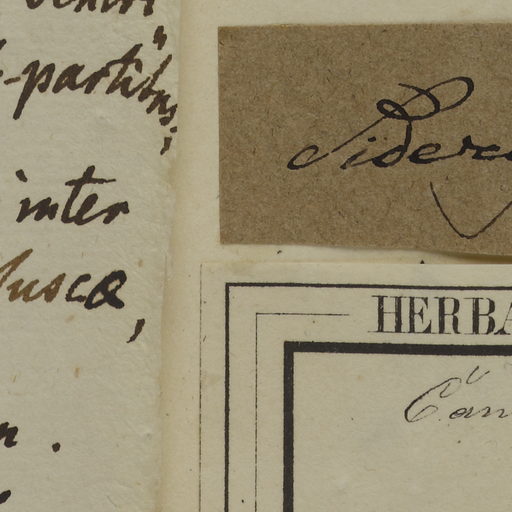 -partibus;
inter
fuscæ,
Sider
HERBA
Can